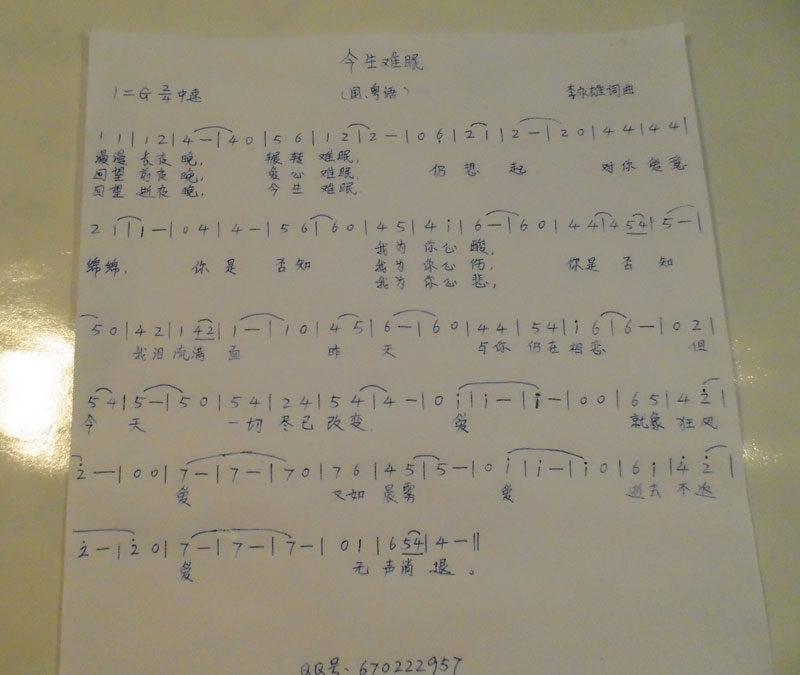 今生难眠
1=G 2/4 中速 (国、粤语) 李永雄词曲
1 1 | 1 2 | 4 — | 4 0 | 5 6 | 1 2 | 2 — | 0 6̣ | 2 1 | 2 — | 2 0 | 4 4 | 4 4 | 4 4 |
漫漫 长夜 晚, 辗转 难眠,
回望 前夜 晚, 爱心 难眠. 仍 想 起 对你 爱意
回望 逝夜 晚, 今生 难眠.
2 1 | 1 — | 0 4 | 4 — | 5 6 | 6 0 | 4 5 | 4 i | 6 — | 6 0 | 4 4 | 4 54 | 5 — |
我为 你心 酸,
绵绵. 你 是 否知 我为 你心 伤, 你是 否 知
我为 你心 悲,
5 0 | 4 2 | 1 42 | 1 — | 1 0 | 4 5 | 6 — | 6 0 | 4 4 | 5 4 | i 6 | 6 — | 0 2 |
我泪 流满 面 昨 天 与你 仍在 相恋 但
5 4 | 5 — | 5 0 | 5 4 | 2 4 | 5 4 | 4 — | 0 i | i — | i — | 0 0 | 6 5 | 4 2̇ |
今 天 一切 尽已 改变. 爱 就象 狂风
2̇ — | 0 0 | 7 — | 7 — | 7 0 | 7 6 | 4 5 | 5 — | 0 i | i — | i 0 | 6 i | 4̇ 2̇ |
爱 又如 晨雾 爱 逝去 不返
2̇ — | 2̇ 0 | 7 — | 7 — | 7 — | 0 1 | 6 54 | 4 — ||
爱 无 声消 退。
QQ号、670222957